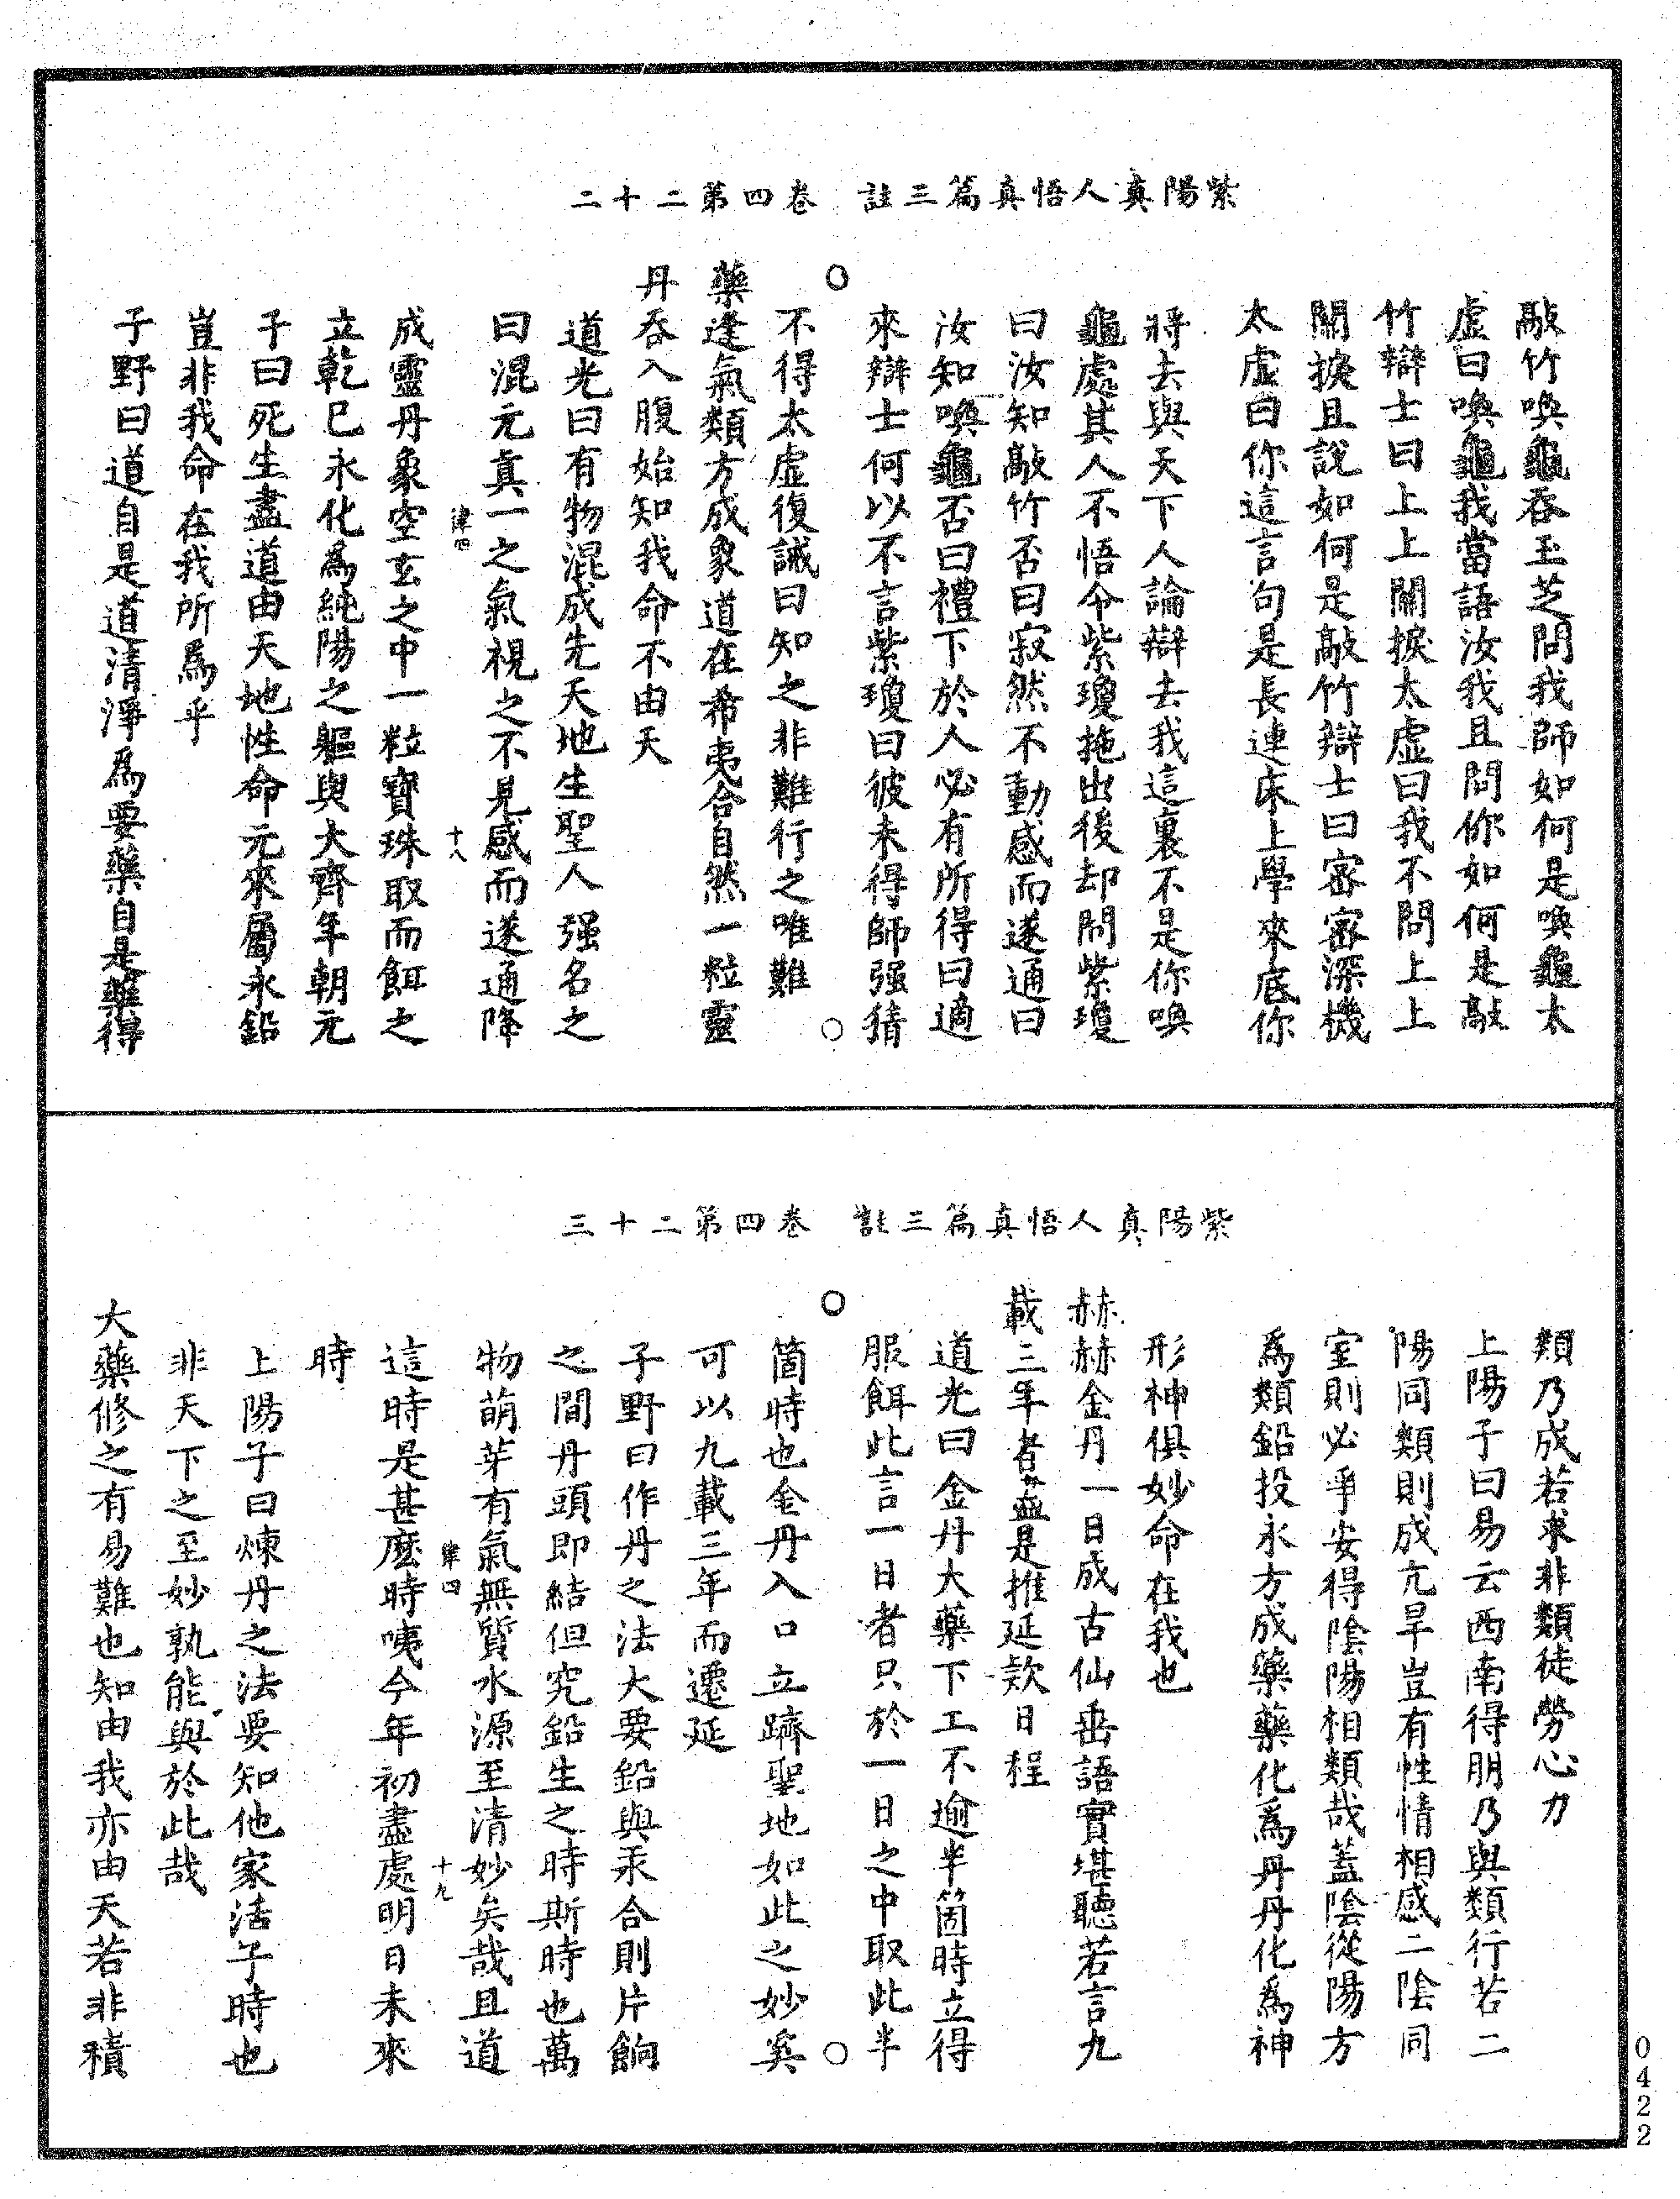 紫陽真人悟真篇三註　卷四第二十二
敲竹喚龜吞玉芝問我師如何是喚龜太
虛曰喚龜我當語汝我且問你如何是敲
竹辯士曰上上關捩太虛曰我不問上上
關捩且說如何是敲竹辯士曰密密深機
太虛曰你這言句是長連床上學來底你
將去與天下人論辯去我這裏不是你喚
龜處其人不悟令紫瓊拖出後却問紫瓊
曰汝知敲竹否曰寂然不動感而遂通曰
汝知喚龜否曰禮下於人必有所得曰適
來辯士何以不言紫瓊曰彼未得師强猜
不得太虛復誡曰知之非難行之唯難
藥逢氣類方成象道在希夷合自然一粒靈
丹吞入腹始知我命不由天
道光曰有物混成先天地生聖人强名之
曰混元真一之氣視之不見感而遂通降
律四　十八
成靈丹象空玄之中一粒寶珠取而餌之
立乾已永化為純陽之軀與大齊年朝元
子曰死生盡道由天地性命元來屬永鉛
豈非我命在我所為乎
子野曰道自是道清淨為要藥自是藥得
紫陽真人悟真篇三註　卷四第二十三
類乃成若求非類徒勞心力
上陽子曰易云西南得朋乃與類行若二
陽同類則成亢旱豈有性情相感二陰同
室則必爭安得陰陽相類哉蓋陰從陽方
為類鉛投永方成藥藥化為丹丹化為神
形神俱妙命在我也
赫赫金丹一日成古仙垂語實堪聽若言九
載三年者盡是推延欵日程
道光曰金丹大藥下工不逾半箇時立得
服餌此言一日者只於一日之中取此半
箇時也金丹入口立躋聖地如此之妙奚
可以九載三年而遷延
子野曰作丹之法大要鉛與汞合則片餉
之間丹頭即結但究鉛生之時斯時也萬
物萌芽有氣無質水源至清妙矣哉且道
律四　十九
這時是甚麼時咦今年初盡處明日未來
時
上陽子曰煉丹之法要知他家活子時也
非天下之至妙孰能與於此哉
大藥修之有易難也知由我亦由天若非積
0422